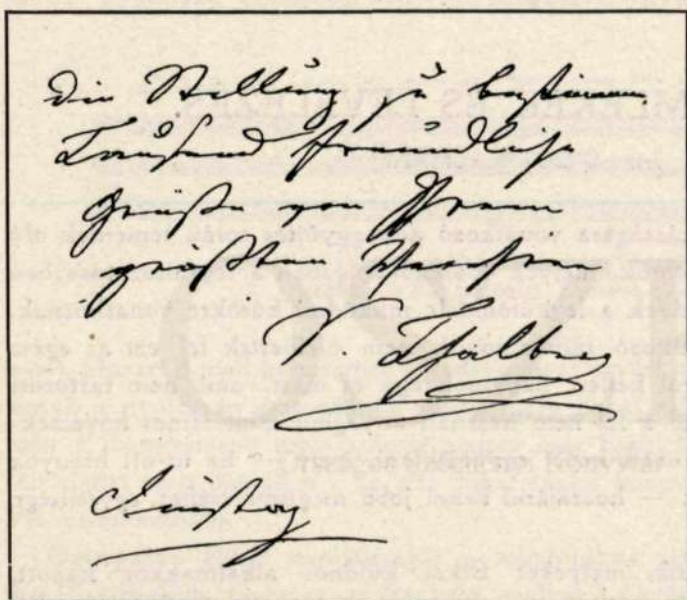 die Stellung zu bestimmen
Tausend freundliche
Grüße von Ihrem
größten Verehrer
S. Thalberg
Dinstag